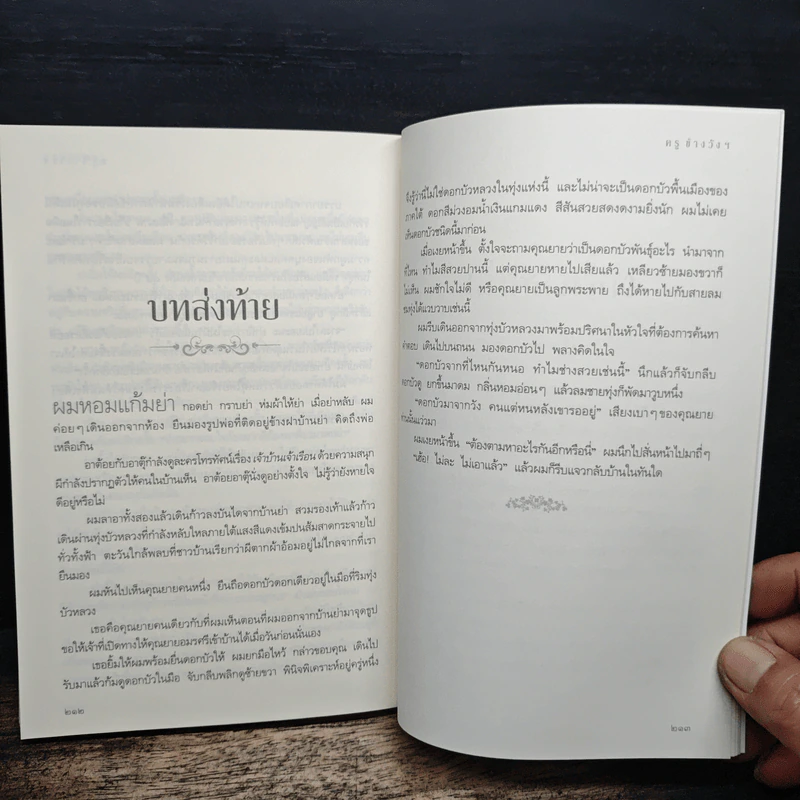 บทส่งท้าย
ผมหอมแก้มย่า กอดย่า กราบย่า ห่มผ้าให้ย่า เมื่อย่าหลับ ผม
ค่อยๆ เดินออกจากห้อง ยืนมองรูปพ่อที่ติดอยู่ข้างฝาบ้านย่า คิดถึงพ่อ
เหลือเกิน
อาต้อยกับอาตุ๊กำลังดูละครโทรทัศน์เรื่อง เจ้าบ้านเจ้าเรือน ด้วยความสนุก
ผีกำลังปรากฏตัวให้คนในบ้านเห็น อาต้อยอาตุ๊นั่งดูอย่างตั้งใจ ไม่รู้ว่ายังหายใจ
ดีอยู่หรือไม่
ผมลาอาทั้งสองแล้วเดินก้าวลงบันไดจากบ้านย่า สวมรองเท้าแล้วก้าว
เดินผ่านทุ่งบัวหลวงที่กำลังหลับใหลภายใต้แสงสีแดงเข้มปนส้มสาดกระจายไป
ทั่วทั้งฟ้า ตะวันใกล้พลบที่ชาวบ้านเรียกว่าผีตากผ้าอ้อมอยู่ไม่ไกลจากที่เรา
ยืนมอง
ผมหันไปเห็นคุณยายคนหนึ่ง ยืนถือดอกบัวดอกเดียวอยู่ในมือที่ริมทุ่ง
บัวหลวง
เธอคือคุณยายคนเดียวกับที่ผมเห็นตอนที่ผมออกจากบ้านย่ามาจุดธูป
ขอให้เจ้าที่เปิดทางให้คุณยายอมรศรีเข้าบ้านได้เมื่อวันก่อนนั่นเอง
เธอยิ้มให้ผมพร้อมยื่นดอกบัวให้ ผมยกมือไหว้ กล่าวขอบคุณ เดินไป
รับมาแล้วก้มดูดอกบัวในมือ จับกลีบพลิกดูซ้ายขวา พินิจพิเคราะห์อยู่ครู่หนึ่ง
๒๑๒
ครู ช้างวังฯ
ถึงรู้ว่านี่ไม่ใช่ดอกบัวหลวงในทุ่งแห่งนี้ และไม่น่าจะเป็นดอกบัวพื้นเมืองของ
ภาคใต้ ดอกสีม่วงอมน้ำเงินแกมแดง สีสันสวยสดงดงามยิ่งนัก ผมไม่เคย
เห็นดอกบัวชนิดนี้มาก่อน
เมื่อเงยหน้าขึ้น ตั้งใจจะถามคุณยายว่าเป็นดอกบัวพันธุ์อะไร นำมาจาก
ที่ไหน ทำไมสีสวยปานนี้ แต่คุณยายหายไปเสียแล้ว เหลียวซ้ายมองขวาก็
ไม่เห็น ผมชักใจไม่ดี หรือคุณยายเป็นลูกพระพาย ถึงได้หายไปกับสายลม
ชมทุ่งได้แวบวาบเช่นนี้
ผมรีบเดินออกจากทุ่งบัวหลวงมาพร้อมปริศนาในหัวใจที่ต้องการค้นหา
คำตอบ เดินไปบนถนน มองดอกบัวไป พลางคิดในใจ
“ดอกบัวจากที่ไหนกันหนอ ทำไมช่างสวยเช่นนี้” นึกแล้วก็จับกลีบ
ดอกบัวดู ยกขึ้นมาดม กลิ่นหอมอ่อนๆ แล้วลมชายทุ่งก็พัดมาวูบหนึ่ง
“ดอกบัวมาจากวัง คนแต่หนหลังเขารออยู่” เสียงเบาๆ ของคุณยาย
ท่านนั้นแว่วมา
ผมเงยหน้าขึ้น “ต้องตามหาอะไรกันอีกหรือนี่” ผมนึกไปสั่นหน้าไปมาถี่ๆ
“เฮ้อ! ไม่ละ ไม่เอาแล้ว” แล้วผมก็รีบแจวกลับบ้านในทันใด
๒๑๓